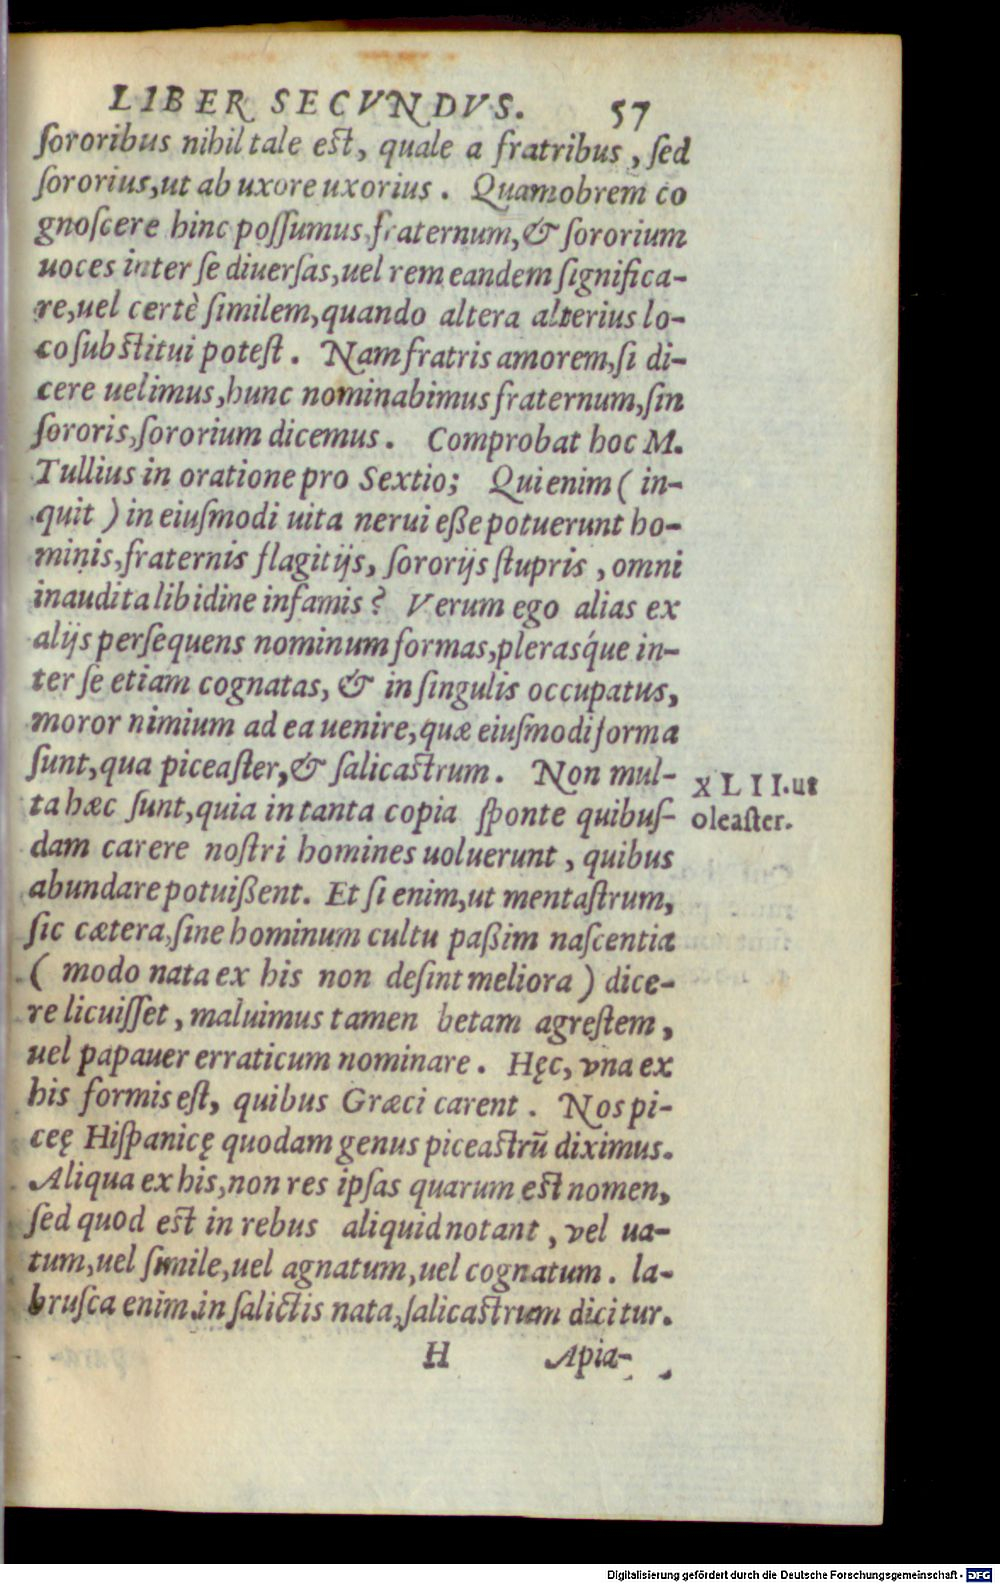 LIBER SECVNDVS. 57
sororibus nihil tale est, quale a fratribus, sed
sororius,ut ab uxore uxorius. Quamobrem co
gnoscere hinc possumus, fraternum,& sororium
uoces inter se diuersas,uel rem eandem significa-
re,uel certè similem,quando altera alterius lo-
co substitui potest. Nam fratris amorem,si di-
cere uelimus,hunc nominabimus fraternum,sin
sororis,sororium dicemus. Comprobat hoc M.
Tullius in oratione pro Sextio; Qui enim ( in-
quit ) in eiusmodi uita nerui eße potuerunt ho-
minis,fraternis flagitijs, sororijs stupris, omni
inaudita libidine infamis? Verum ego alias ex
alijs persequens nominum formas,plerasq́ue in-
ter se etiam cognatas, & in singulis occupatus,
moror nimium ad ea uenire,quæ eiusmodi forma
sunt,qua piceaster,& salicastrum. Non mul-
ta hæc sunt,quia in tanta copia sponte quibus-
dam carere nostri homines uoluerunt, quibus
abundare potuißent. Et si enim,ut mentastrum,
sic cætera,sine hominum cultu paßim nascentia
( modo nata ex his non desint meliora ) dice-
re licuisset, maluimus tamen betam agrestem,
uel papauer erraticum nominare. Hęc, vna ex
his formis est, quibus Græci carent. Nos pi-
ceę Hispanicę quodam genus piceastrũ diximus.
Aliqua ex his,non res ipsas quarum est nomen,
sed quod est in rebus aliquid notant, vel ua-
tum,uel simile,uel agnatum,uel cognatum. la-
brusca enim in salictis nata,salicastrum dicitur.
H Apia-
XLII. ut
oleaster.
Digitalisierung gefördert durch die Deutsche Forschungsgemeinschaft - DFG